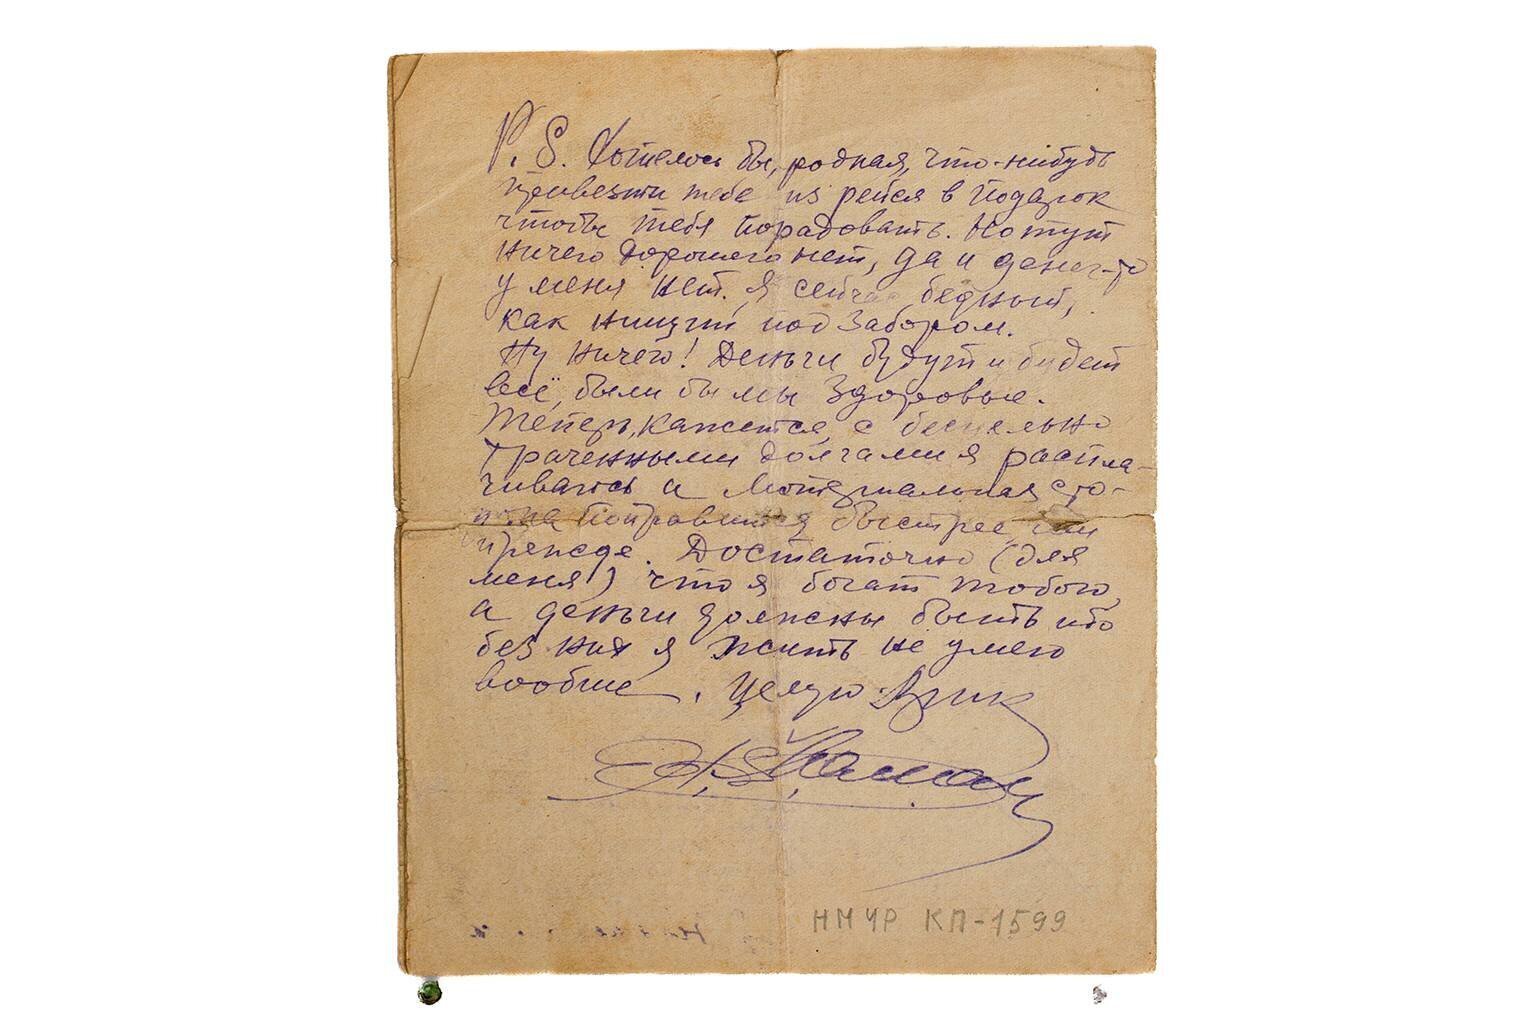 P.S. Хотелось бы, родная, что-нибудь
привезти тебе из рейса в подарок
чтобы тебя порадовать. Но тут
ничего хорошего нет, да и денег-то
у меня нет. Я сейчас бедный,
как нищий под забором.
Ну ничего! Деньги будут и будет
всё, были бы мы здоровые.
Теперь, кажется, с бесцельно
траченными долгами я распла-
чиваюсь а материальная сто-
рона поправится быстрее, чем
прежде. Достаточно (для
меня) что я богат тобою,
а деньги должны быть ибо
без них я жить не умею
вообще. Целую
НМЧР КП-1599